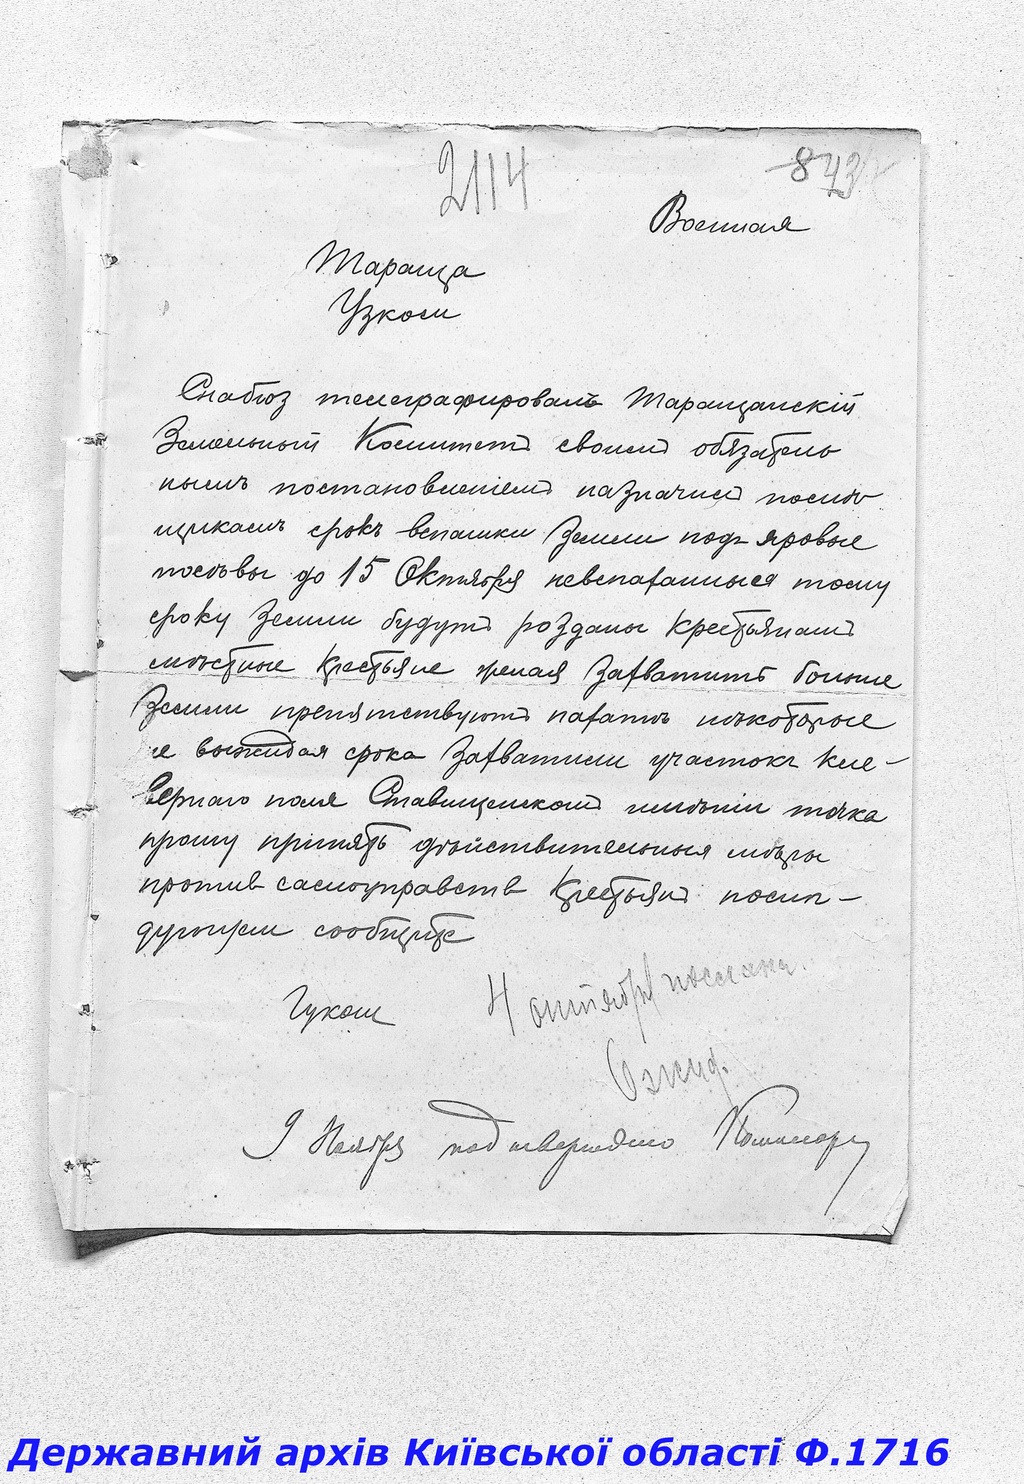 2114
873
Военная
Тараща
Узком
Снабюз телеграфировалъ Таращанскій
Земельный Комитет своим обязатель
нымъ постановленіем назначил помѣ
щикамъ срокъ вспашки Земли подъ яровые
посѣвы до 15 Октября невспаханныя тому
сроку Земли будут розданы Крестьянам
мѣстные Крестьяне желая Захватить больше
Земли препятствуют пахать нѣкоторые
не выжидая срока Захватили участокъ Кле-
вернаго поля Ставищенском имѣніи точка
прошу принять дѣйствительныя мѣры
против самоуправств Крестьян послѣ-
дующем сообщите
Гуком
4 октября послана.
9 Ноября подтверждено
Державний архів Київської області Ф.1716